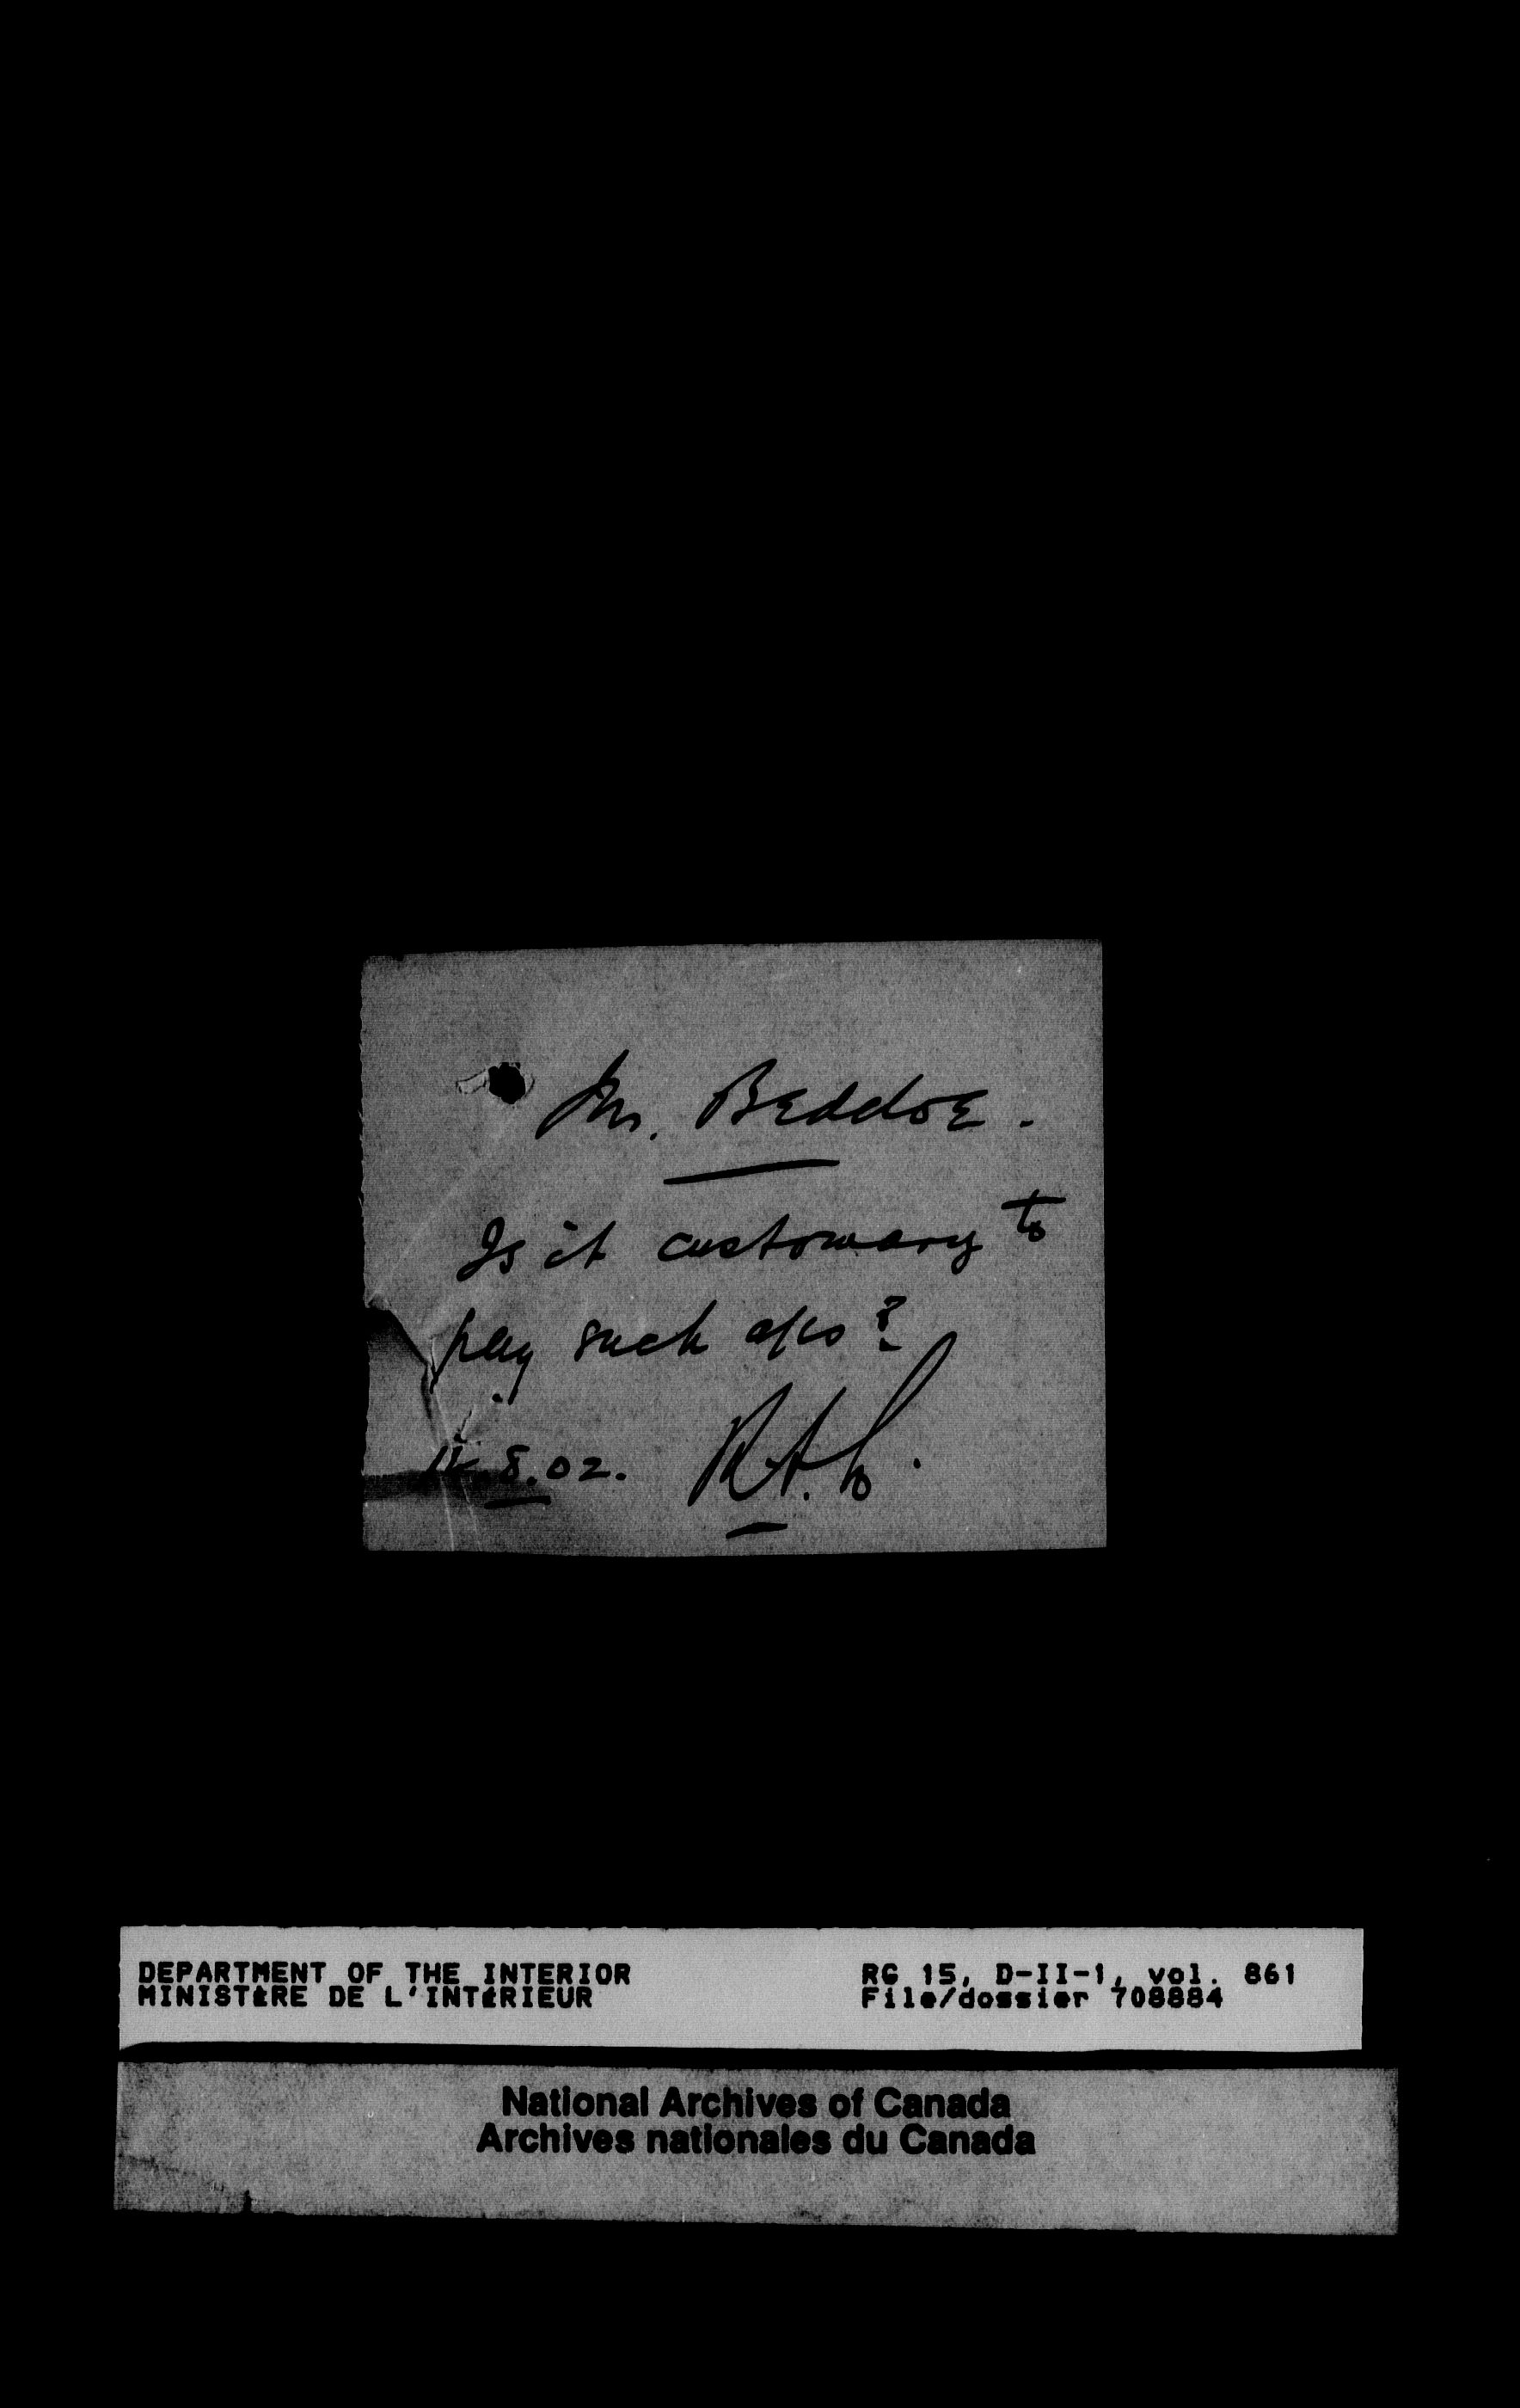 Mr. Beddoe.
Is it customary to
pay such a/cs?
12.8.02.
DEPARTMENT OF THE INTERIOR
MINISTÈRE DE L'INTÉRIEUR
RG 15, D-II-1, vol. 861
File/dossier 708884
National Archives of Canada
Archives nationales du Canada